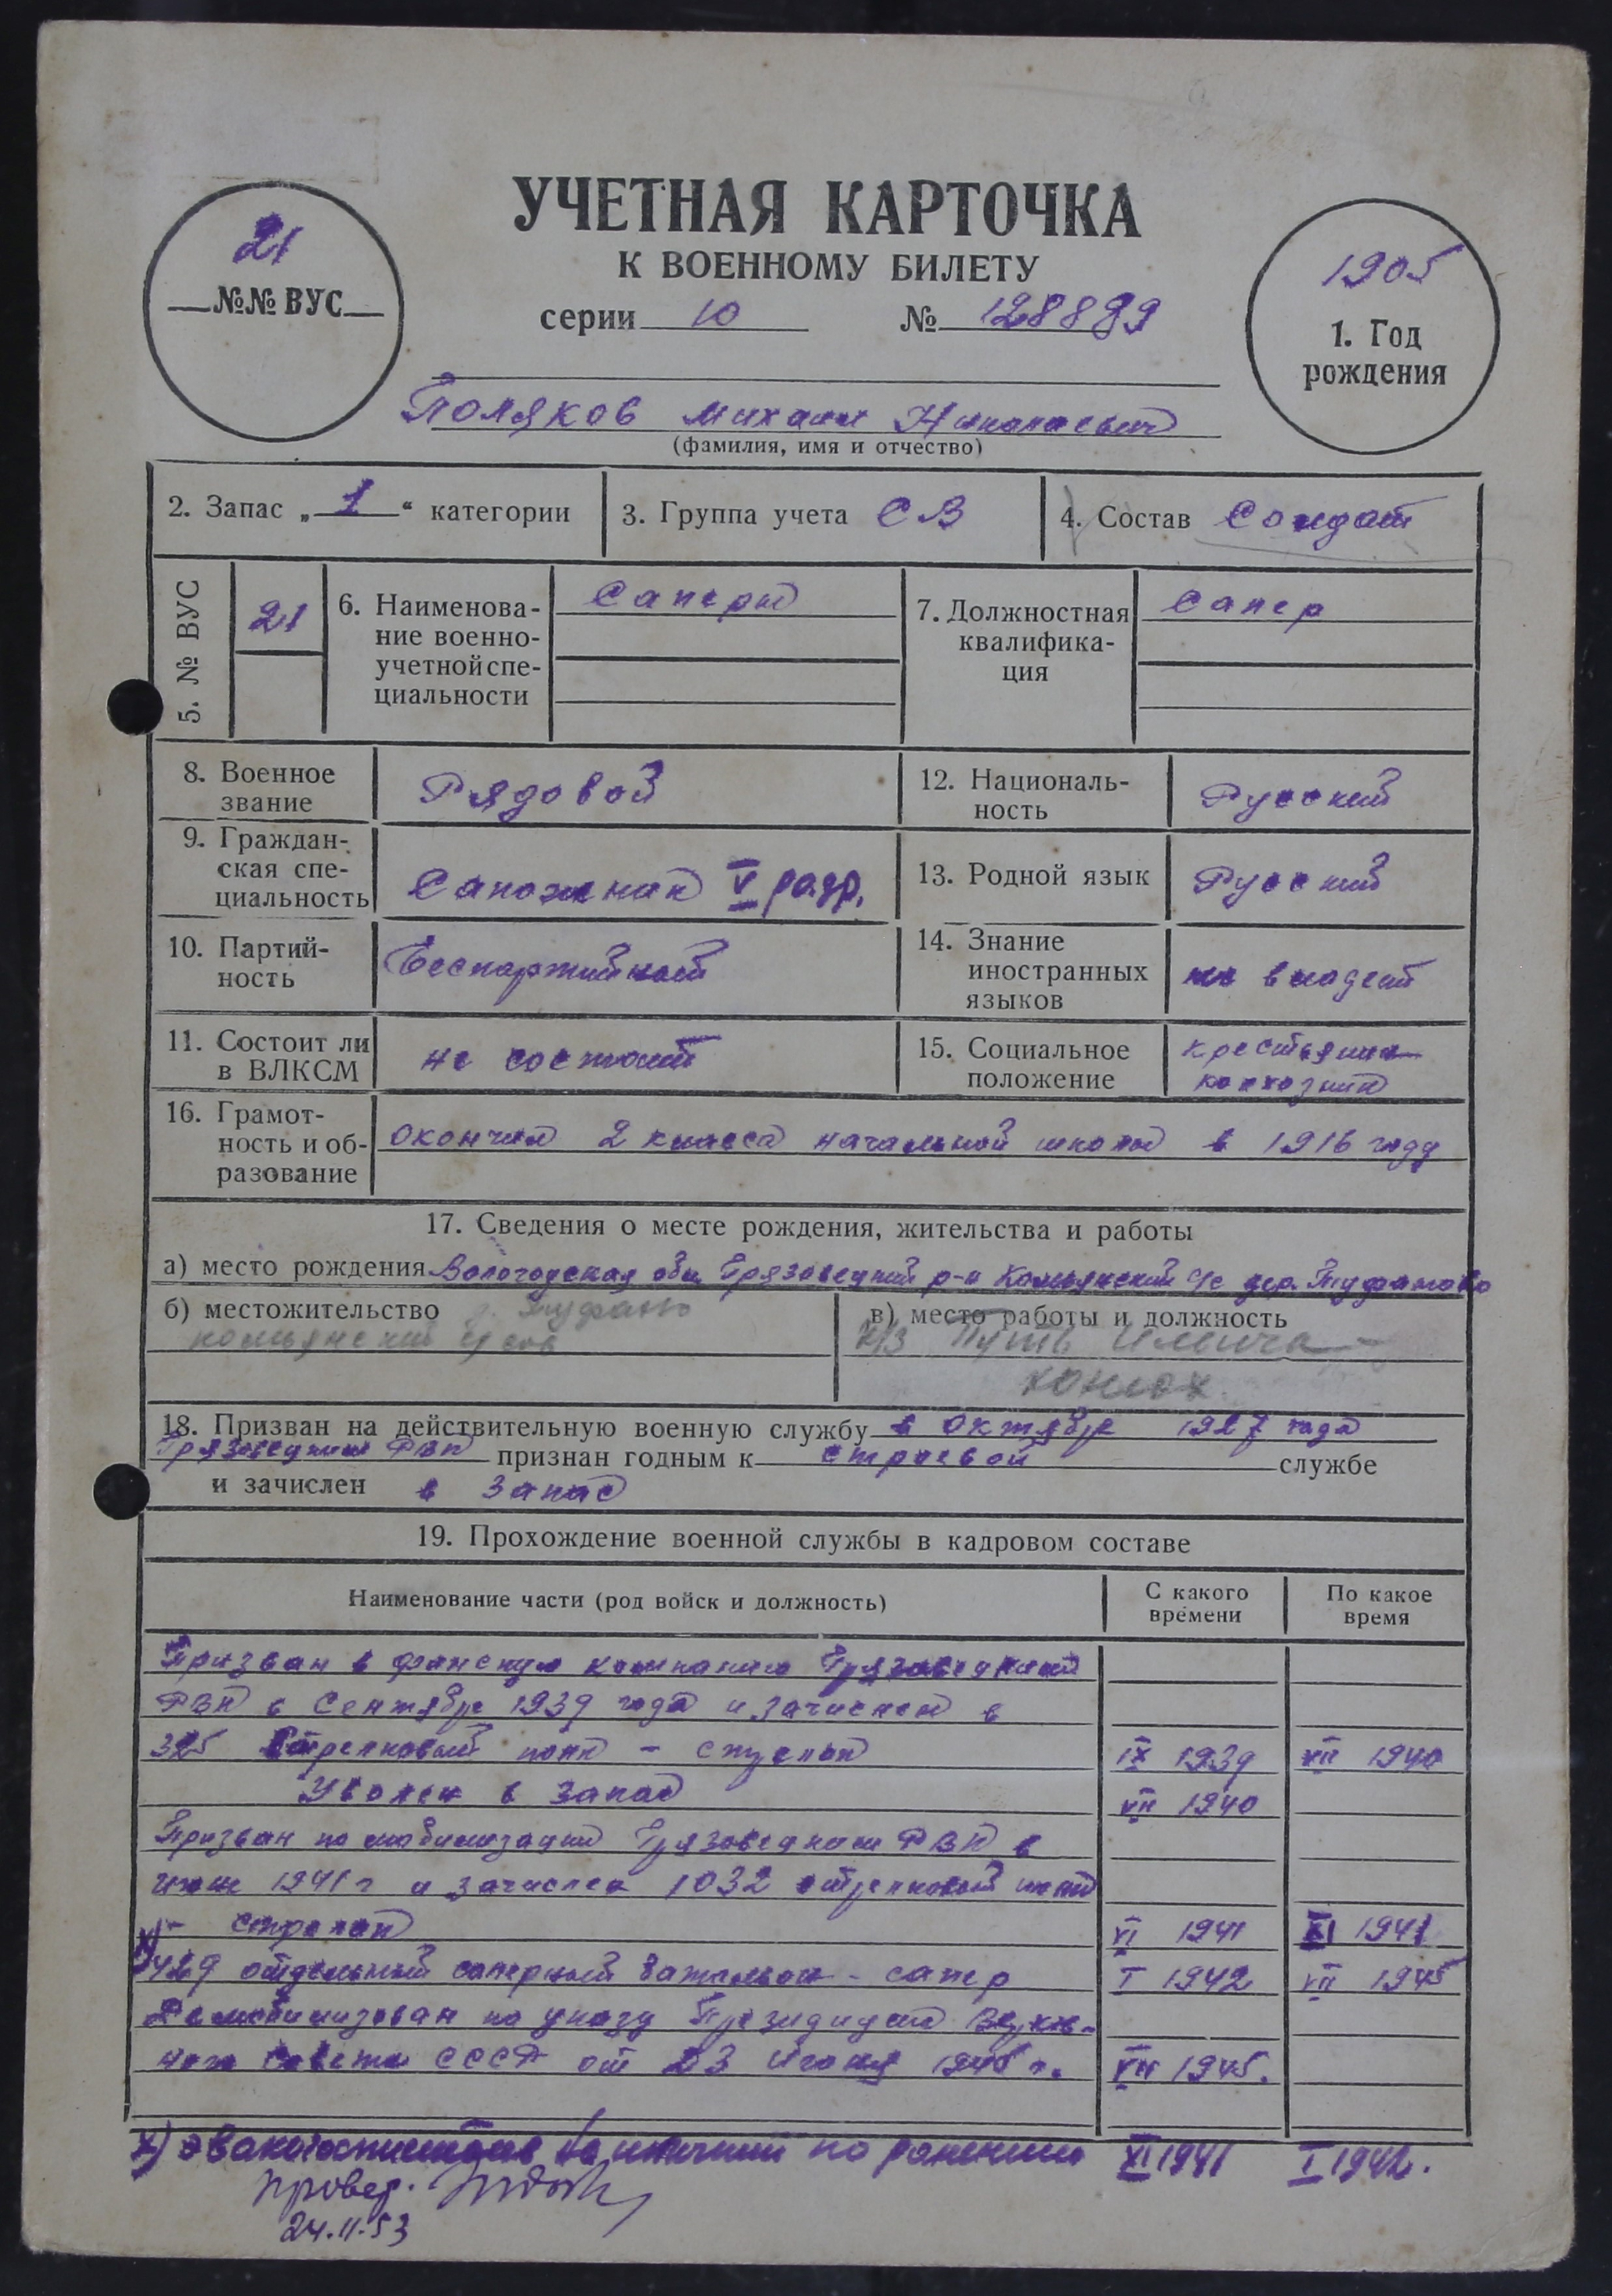 УЧЕТНАЯ КАРТОЧКА
К ВОЕННОМУ БИЛЕТУ
21
№№ ВУС
серии 10 № 128889
1905
1. Год
рождения
Поляков Михаил Николаевич
(фамилия, имя и отчество)
2. Запас „1“ категории
3. Группа учета СВ
4. Состав Солдат
5. № ВУС
21
6. Наименова-
ние военно-
учетной спе-
циальности
Саперы
7. Должностная
квалифика-
ция
Сапер
8. Военное
звание
Рядовой
12. Националь-
ность
Русский
9. Граждан-
ская спе-
циальность
Сапожник V разр.
13. Родной язык
Русский
10. Партий-
ность
Беспартийный
14. Знание
иностранных
языков
не владеет
11. Состоит ли
в ВЛКСМ
не состоит
15. Социальное
положение
крестьянин
колхозник
16. Грамот-
ность и об-
разование
окончил 2 класса начальной школы в 1916 году
17. Сведения о месте рождения, жительства и работы
а) место рождения Вологодская обл Грязовецкий р-н Комьянский с/с дер. Туфаново
б) местожительство д. Туфаново
комьянский с/сов
в) место работы и должность
к/з Путь Ильича -
конюх
18. Призван на действительную военную службу в октябре 1927 года
Грязовецким РВК признан годным к строевой службе
и зачислен в запас
19. Прохождение военной службы в кадровом составе
Наименование части (род войск и должность)
С какого
времени
По какое
время
Призван в финскую кампанию Грязовецким
РВК в сентябре 1939 года и зачислен в
325 стрелковый полк -
IX 1939 VII 1940
Уволен в запас VII 1940
Призван по мобилизации Грязовецким РВК в
июне 1941 г и зачислен 1032 стрелковый полк
- стрелок VI 1941 XI 1941
х) 429 отдельный саперный батальон - сапер I 1942 VII 1945
Демобилизован по указу Президиума Верхов-
ного Совета СССР от 23 июня 1945 г. VII 1945.
х) эвакогоспиталь на излечении по ранению XI 1941 I 1942.
провер.
24.11.53